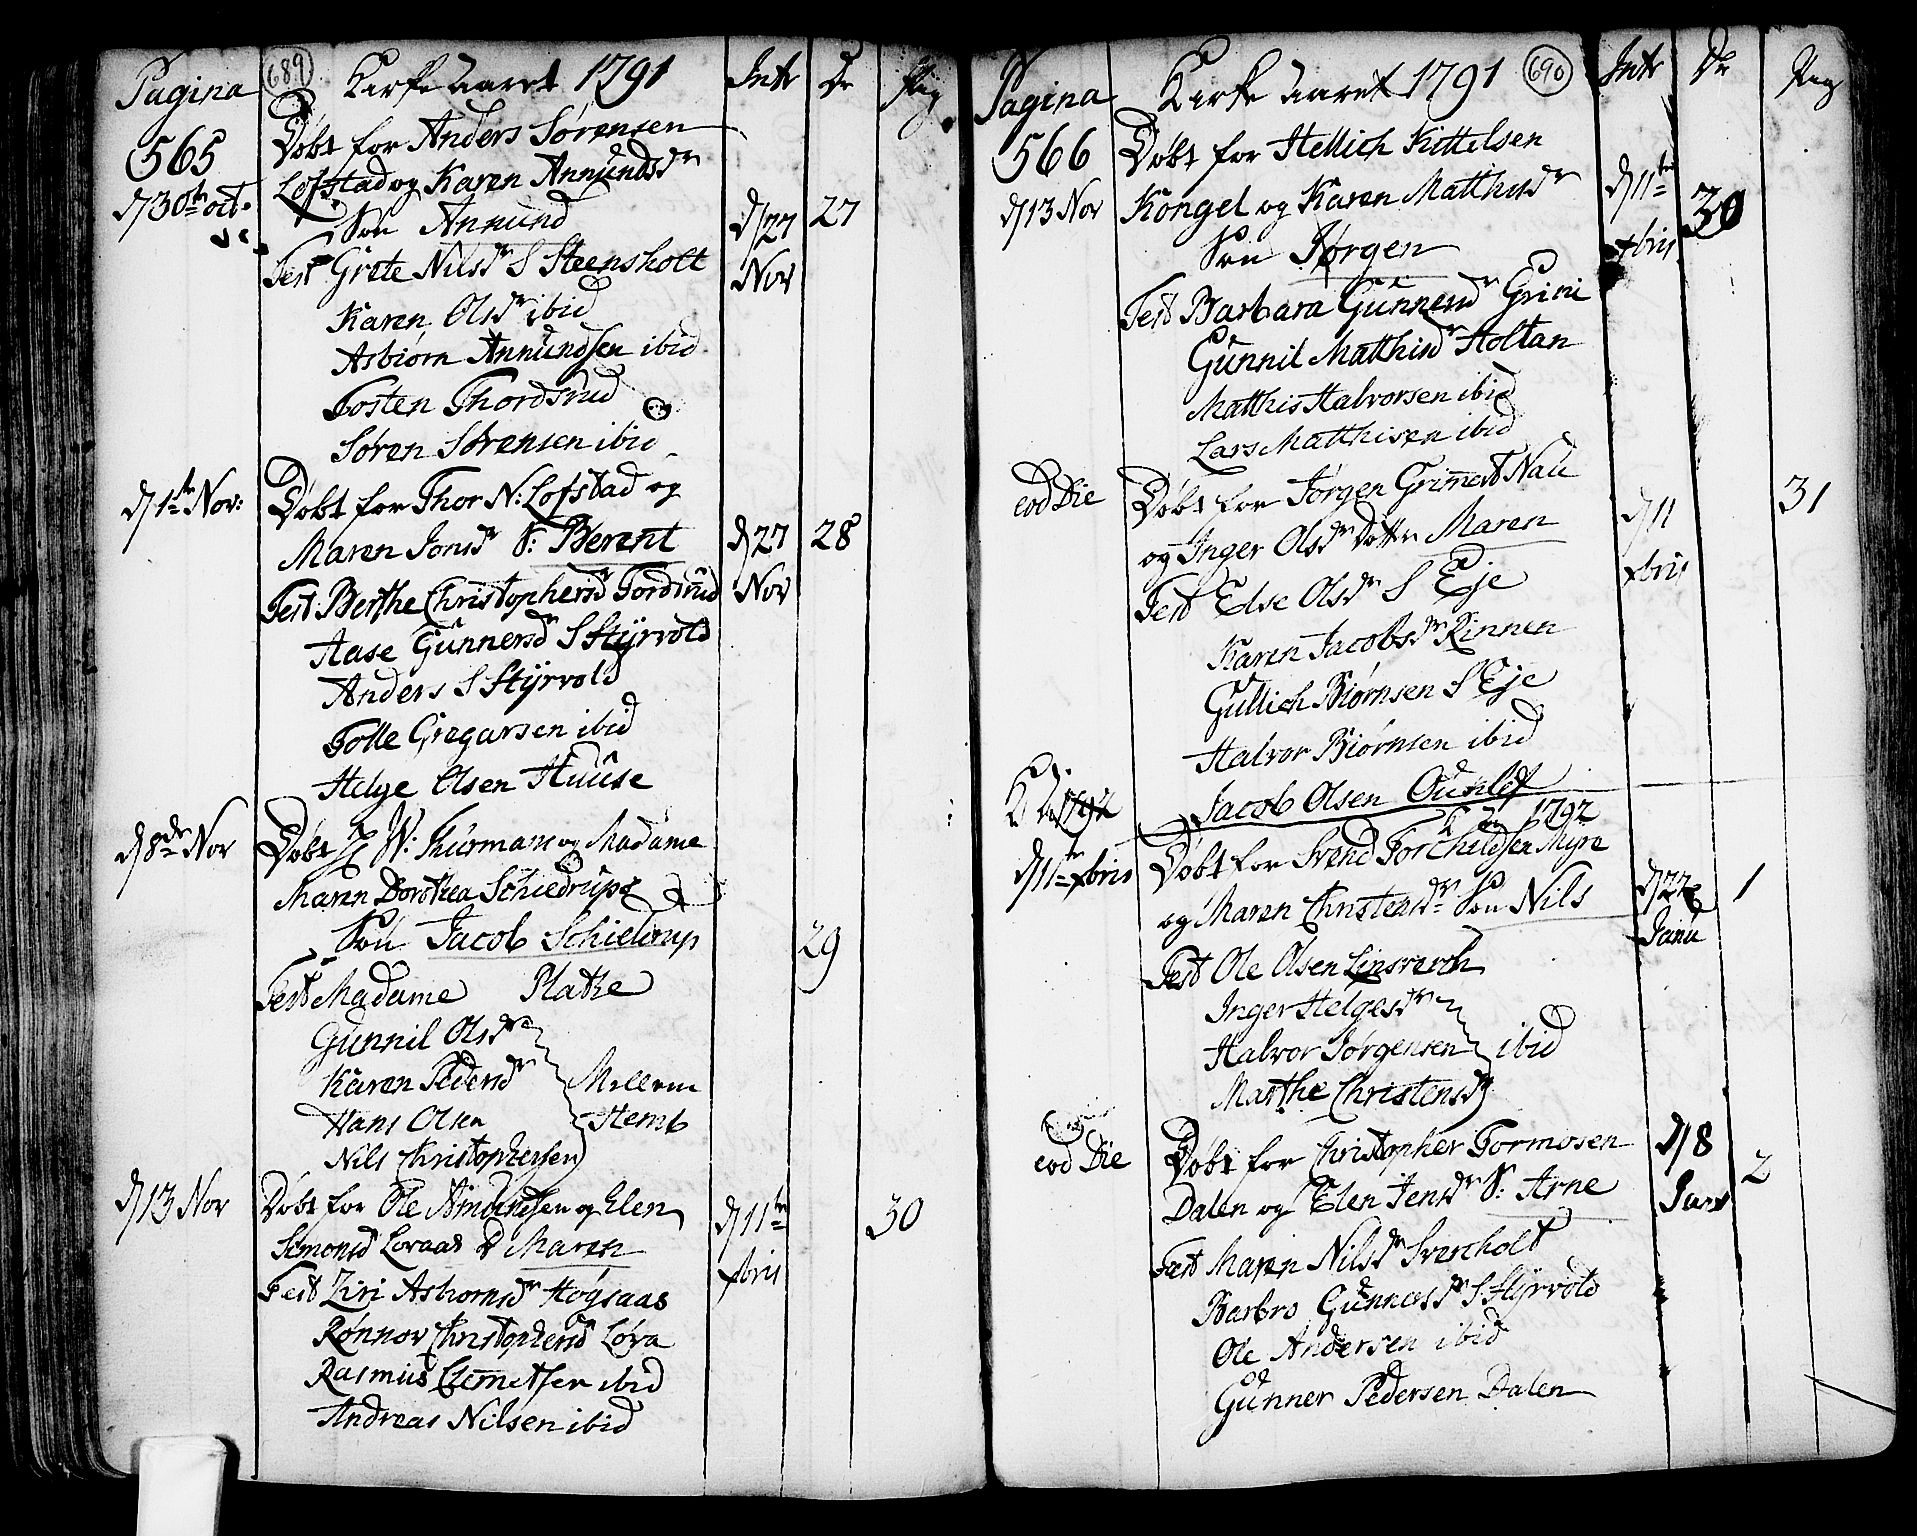 Pagina 689 Kirke Aaret 1791 Intr Dr Pig
565 Døbt for Anders Sørensen
d/30te oct. Lofstad og Karen Annundsdr
Søn Annund d/27 Nov 27
Test Grete Nilsdr S Steensholt
Karen Olsdr ibid
Asbiørn Annundsen ibid
Tosten Thordsrud
Søren Sørensen ibid
d/1te Nov: Døbt for Thor N: Lofstad og
Maren Jonsdr S: Berent d/27 Nov 28
Test: Berthe Christophersdr Tordsrud
Aase Gunnersdr S Styrvold
Anders S Styrvold
Tolle Gregarsen ibid
Helge Olsen Huuse
d/8de Nov Døbt W: Thurmam og Madame
Maren Dorothea Schiedrups
Søn Jacob Schielrup 29
Test Madame Plathe
Gunnil Olsdr
Karen Pedersdr Mellem
Hans Olsen Hemb
Nils Christophersen
d/13 Nov Døbt for Ole Amundsen og Elen
Simonsd Loraas D Maren d/11te xbris 30
Test Ziri Asbornsdr Høgsaas
Rønnov Christophersd Løva
Rasmus Clemetsen ibid
Andreas Nilsen ibid
Pagina Kirke Aaret 1791 690 Intr Dr Pig
566 Døbt for Hellich Kittelsen
d/13 Nov Kongel og Karen Matthisdr d/11te xbris 30
Søn Jørgen
Test Barbara Gunnersdr Grini
Gunnil Matthisdr Holtan
Matthis Halvorsen ibid
Lars Matthisen ibid
eod Die Døbt for Jørgen Grimert Nau 31
og Inger Olsdr Dotter Maren d/11 xbris
Test Edse Olsdr S Eje
Karen Jacobsdr Rinnen
Gullich Biørnsen S Eje
Halvor Biørnsen ibid
Jacob Olsen
K 1792 K 1792
d/11te xbris Døbt for Svend Torchildsen Myre
og Maren Christensdr Søn Nils d/22 Janu 1
Test Ole Olsen Linsverch
Inger Helgesdr
Halvor Jørgensen ibid
Marthe Christensd
eod Die Døbt for Christopher Tormosen d/8
Dalen og Elen Jensdr S: Arne Janv 2
Test Maren Nilsdr Svercholt
Barbro Gunnersdr S Styrvold
Ole Andersen ibid
Gunner Pedersen Dalen